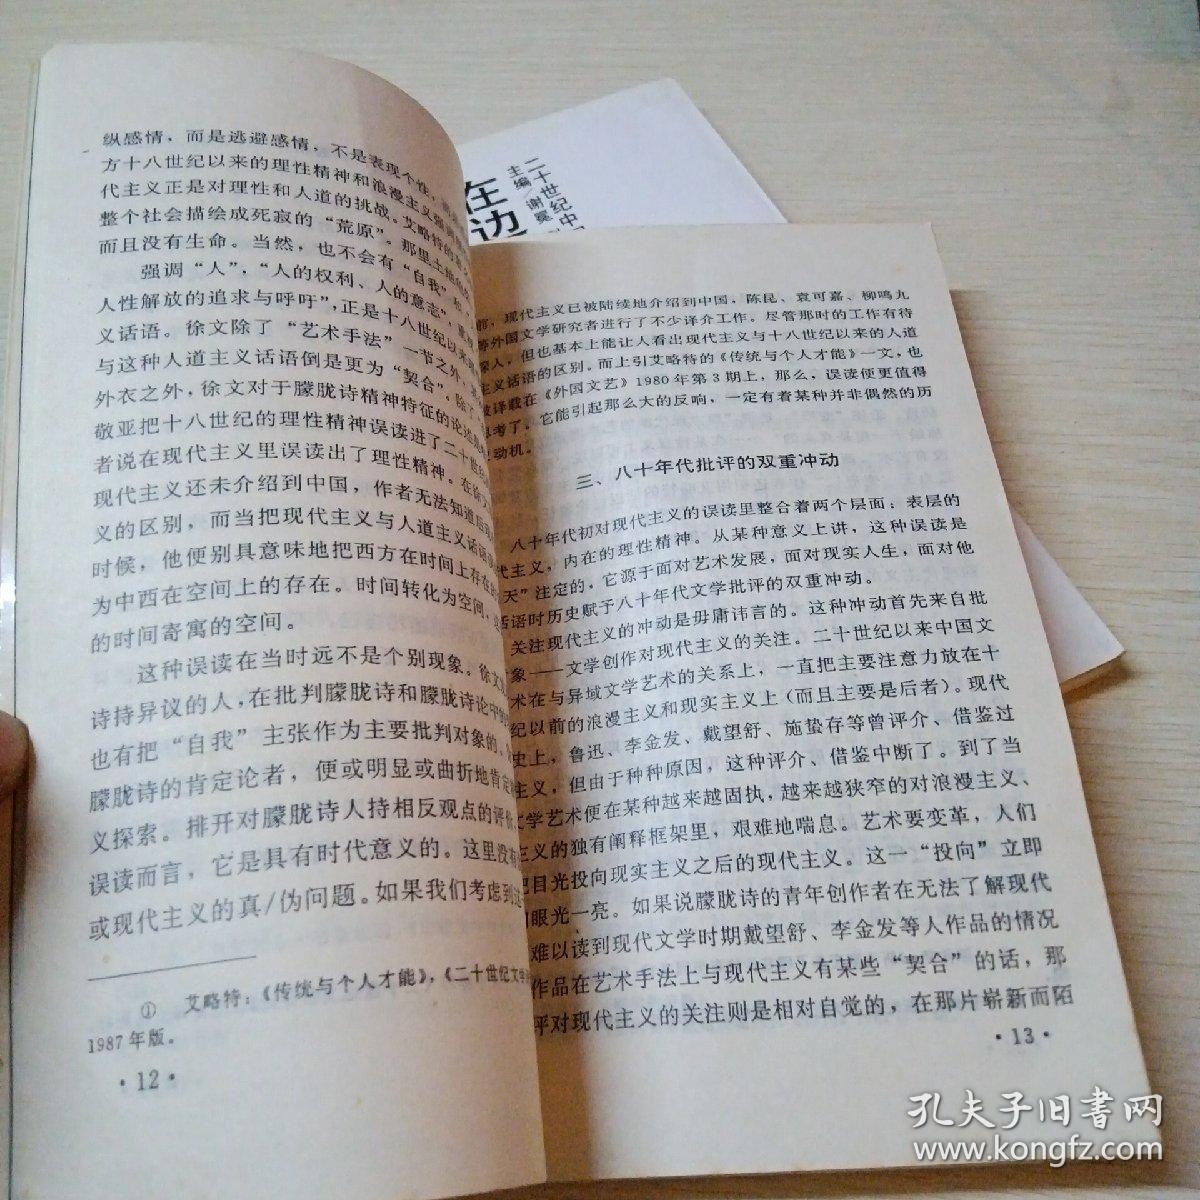 纵感情，而是逃避感情，不是表现个性，
方十八世纪以来的理性精神和浪漫主义强调
代主义正是对理性和人道的挑战。艾略特的
整个社会描绘成死寂的“荒原”。那里土地
而且没有生命。当然，也不会有“自我”和
强调“人”，“人的权利、人的意志”重
人性解放的追求与呼吁”，正是十八世纪以来
义话语。徐文除了“艺术手法”一节之外，
与这种人道主义话语倒是更为“契合”。除了
外衣之外，徐文对于朦胧诗精神特征的论述
敬亚把十八世纪的理性精神误读进了二十世纪
者说在现代主义里误读出了理性精神。在徐文
现代主义还未介绍到中国，作者无法知道后
义的区别，而当把现代主义与人道主义话语
时候，他便别具意味地把西方在时间上存在
为中西在空间上的存在。时间转化为空间，
的时间寄寓的空间。
这种误读在当时远不是个别现象。徐文
诗持异议的人，在批判朦胧诗和朦胧诗论中
也有把“自我”主张作为主要批判对象的，
朦胧诗的肯定论者，便或明显或曲折地肯定
义探索。排开对朦胧诗人持相反观点的评价
误读而言，它是具有时代意义的。这里没有
或现代主义的真/伪问题。如果我们考虑到
① 艾略特：《传统与个人才能》，《二十世纪文学
1987年版。
·12·
在边
二十世纪中
主编/谢冕
前，现代主义已被陆续地介绍到中国，陈昆、袁可嘉、柳鸣九
等外国文学研究者进行了不少译介工作。尽管那时的工作有待
深人，但也基本上能让人看出现代主义与十八世纪以来的人道
主义话语的区别。而上引艾略特的《传统与个人才能》一文，也
被译载在《外国文艺》1980年第3期上，那么，误读便更值得
思考了。它能引起那么大的反响，一定有着某种并非偶然的历
史动机。
三、八十年代批评的双重冲动
八十年代初对现代主义的误读里整合着两个层面：表层的
代主义，内在的理性精神。从某种意义上讲，这种误读是
天”注定的，它源于面对艺术发展，面对现实人生，面对他
话语时历史赋予八十年代文学批评的双重冲动。
关注现代主义的冲动是毋庸讳言的。这种冲动首先来自批
象——文学创作对现代主义的关注。二十世纪以来中国文
术在与异域文学艺术的关系上，一直把主要注意力放在十
纪以前的浪漫主义和现实主义上（而且主要是后者）。现代
史上，鲁迅、李金发、戴望舒、施蛰存等曾评介、借鉴过
主义，但由于种种原因，这种评介、借鉴中断了。到了当
文学艺术便在某种越来越固执，越来越狭窄的对浪漫主义、
主义的独有阐释框架里，艰难地喘息。艺术要变革，人们
把目光投向现实主义之后的现代主义。这一“投向”立即
眼光一亮。如果说朦胧诗的青年创作者在无法了解现代
难以读到现代文学时期戴望舒、李金发等人作品的情况
作品在艺术手法上与现代主义有某些“契合”的话，那
评对现代主义的关注则是相对自觉的，在那片崭新而陌
·13·
孔夫子旧书网
www.kongfz.com